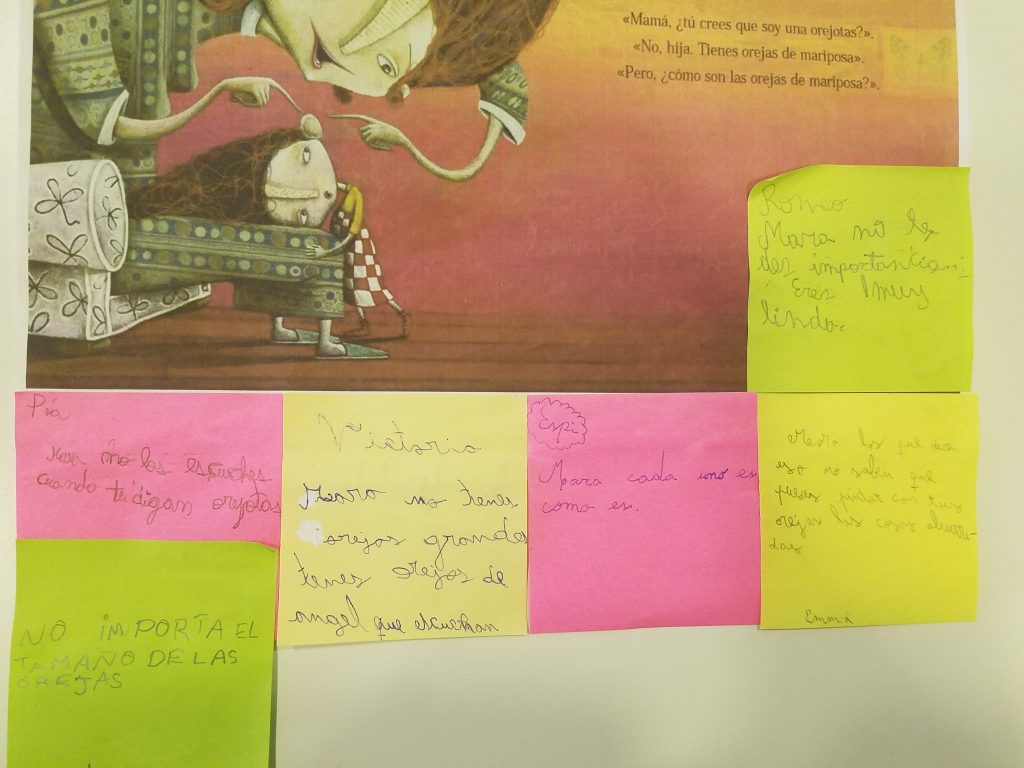 «Mamá, ¿tú crees que soy una orejotas?».
«No, hija. Tienes orejas de mariposa».
«Pero, ¿cómo son las orejas de mariposa?».
Romeo
Mara no le
des importancia..
Eres muy
linda.
Pía
Mara no los escuches
cuando te digan orejotas
Victoria
Mara no tenes
orejas grandes
tenes orejas de
angel que escuchan
Espi
Mara cada uno es
como es.
Mara los que dicen
eso no saben que
puedes pintar con tus
orejas las cosas aburri-
das
Emma
NO iMPORTA EL
TAMAÑO DE LAS
OREJAS